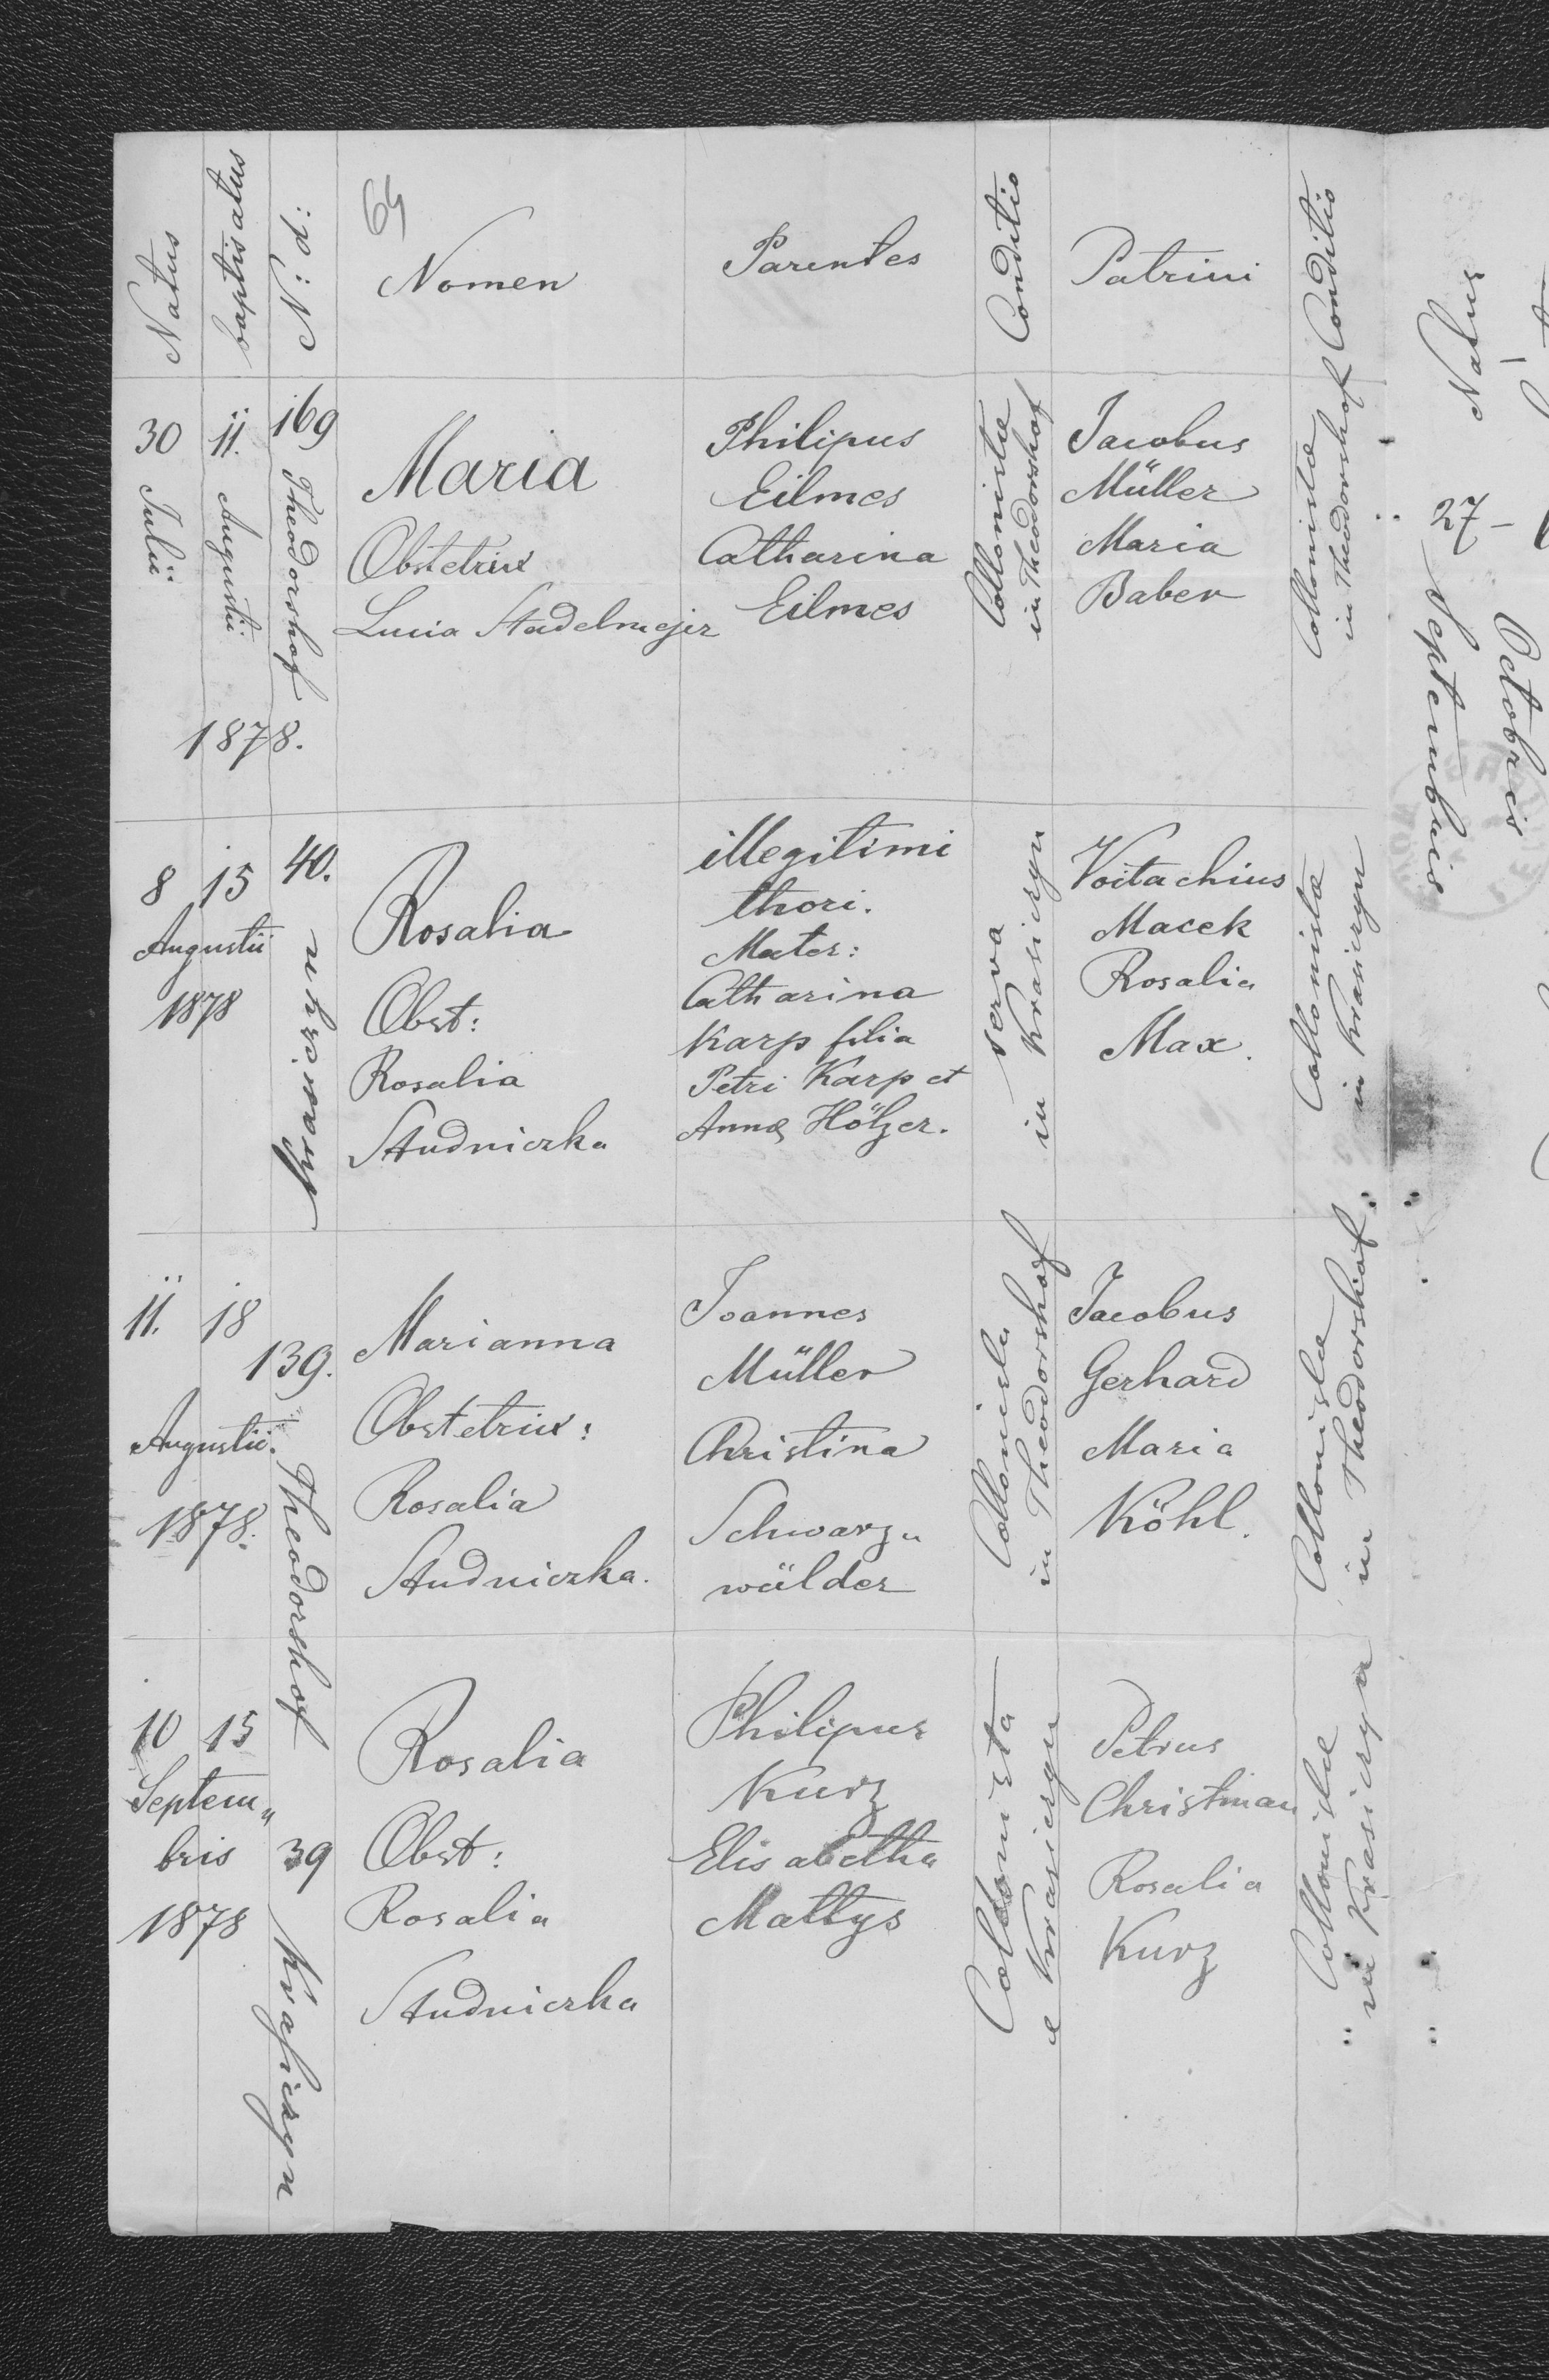 64
Natus
baptisatus
N: d:
Nomen
Parentes
Conditio
Patrini
Conditio
30 Julii
11. Augustii
1878.
169
Theodorshof
Maria
Obstetrix
Lucia Stadelmejer
Philipus
Eilmes
Catharina
Eilmes
Collonistæ
in Theodorshof
Jacobus
Müller
Maria
Baber
Collonistæ
in Theodorshof
8 15
Augustii
1878
40.
Rosalia
Obst:
Rosalia
Studniczka
illegitimi
thori.
Mater:
Catharina
Karp filia
Petri Karp et
Annæ Hölzer.
serva
in Krasiczyn
Voitachius
Macek
Rosalia
Max.
Collonistæ
in Krasiczyn
11. 18
Augustii.
1878.
139.
Theodorshof
Marianna
Obstetrix:
Rosalia
Studniczka.
Joannes
Müller
Christina
Schwarz„
wälder
Collonistæ
in Theodorshof
Jacobus
Gerhard
Maria
Köhl.
Collonistæ
in Theodorshof
10 15
Septem„
bris
1878
39
Krasiczyn
Rosalia
Obst:
Rosalia
Studniczka
Philipus
Kurz
Elisabetha
Mattys
Colonista
e Krasiczyn
Petrus
Christman
Rosalia
Kurz
Collonistæ
in Krasiczyn
Natus
27 - Septembris
Octobris